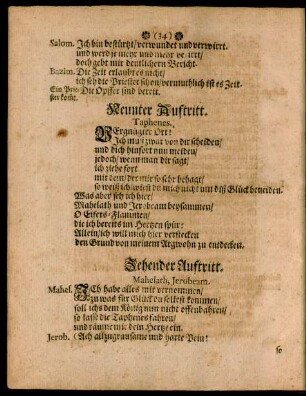 (34)
Salom. Ich bin bestürtzt/verwundet und verwirrt.
und werde mehr und mehr verirrt/
doch gebt mir deutlichern Bericht.
Buzim. Die Zeit erlaubt es nicht/
ich seh die Priester schon/vermuthlich ist es Zeit.
Ein Prie- Die Opffer sind bereit.
ster komt.
Neunter Auftritt.
Taphenes.
VErgnügter Ort!
Ich muß zwar von dir scheiden/
und dich hinfort nun meiden/
jedoch/ wenn man dir sagt/
ich ziehe fort
mit dem/ der mir so sehr behagt/
so weiß ich/ wirst du mich nicht um diß Glück beneiden.
Was aber seh ich hier/
Mahelath und Jerobeam beysammen/
O Eifers-Flammen/
die ich bereits im Hertzen spür!
Allein/ ich will mich hier verstecken
den Grund von meinem Argwohn zu entdecken.
Zehender Auftritt.
Mahelath, Jerobeam.
Mahel. ICh habe alles mir vernommen/
zu was für Glück du solltest kommen/
soll ichs dem König nun nicht offenbahren/
so lasse die Taphenes fahren/
und räume mir dein Hertze ein.
Jerob. (Ach allzugrausame und harte Pein!
so